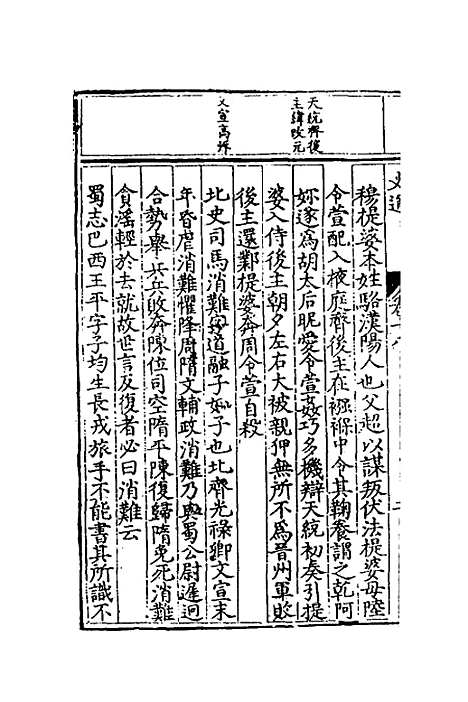 天統齊後
主緯改元
文宣高洋
穆提婆本姓駱漢陽人也父超以謀叛伏法提婆母陸
令萱配入掖庭齊後主在襁褓中令其鞠養謂之乾阿
妳遂爲胡太后昵愛令萱姦巧多機辯天統初奏引提
婆入侍後主朝夕左右大被親狎無所不爲晉州軍敗
後主還鄴提婆奔周令萱自殺
北史司馬消難字道融子如子也北齊光祿卿文宣末
年昏虐消難懼降周隋文輔政消難乃與蜀公尉遲迥
合勢舉兵兵敗奔陳位司空隋平陳復歸隋免死消難
貪滛輕於去就故世言反復者必曰消難云
蜀志巴西王平字子均生長戎旅手不能書其所識不